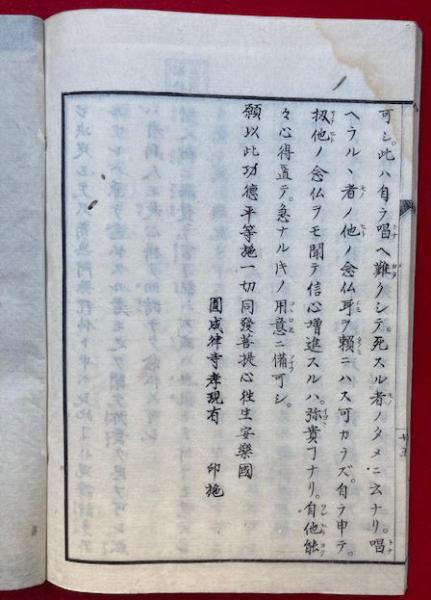 可シ。此ハ自ラ唱ヘ難クシテ。死スル者ノタメニ云ナリ。唱
ヘラルヽ者ノ他ノ念仏耳ヲ頼ニハス可カラズ。自ラ申テ。
扨他ノ念仏ヲモ聞テ信心増進スルハ。弥貴丁ナリ。自他能
々心得置テ。急ナル𪜈ノ用意ニ備可シ。
願以此功德平等施一切同發菩提心往生安樂國
圓成律寺孝現有 印施
廿五